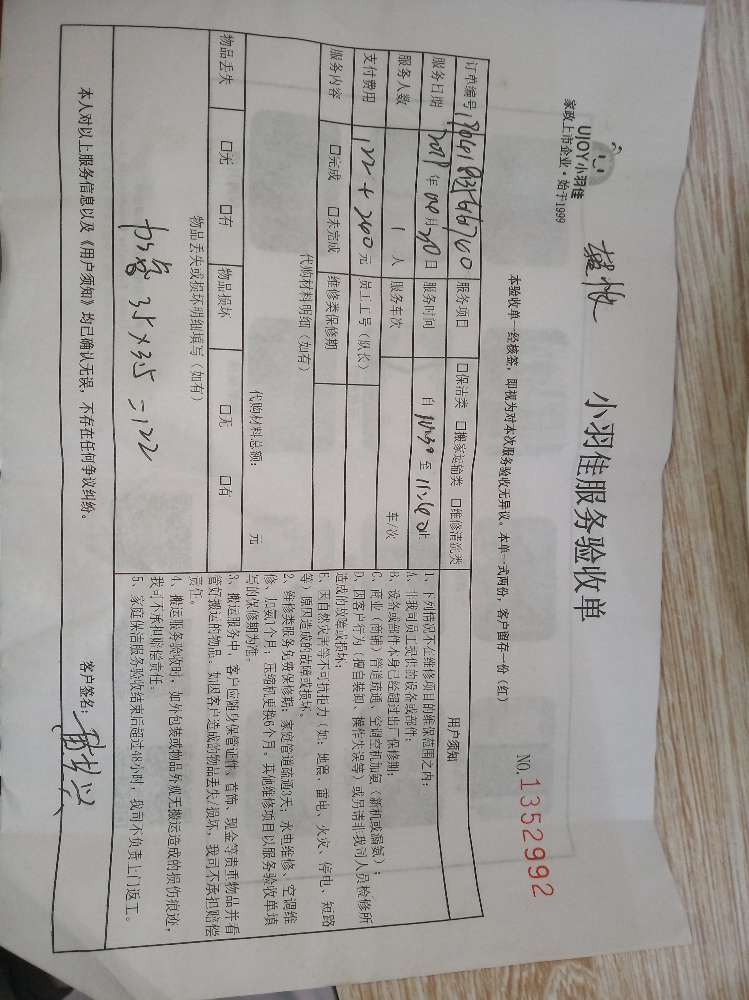 UJOY小羽佳
家政上市企业·始于1999
小羽佳服务验收单
本验收单一经核签，即视为对本次服务验收无异议。本单一式两份，客户留存一份（红）
NO.1352992
订单编号
服务项目 口保洁类 口搬家运输类 口维修清洗类
服务日期 年 04月30日 服务时间 自10:30至 止
服务人数 1 人 服务车次 车/次
支付费用 122+240元 员工工号（队长）
服务内容 口完成 口未完成 维修类保修期
代购材料明细（如有）
代购材料总额： 元
物品丢失 口无 口有 物品损坏 口无 口有
物品丢失或损坏明细填写（如有）
35×3.5=122
用户须知
1、下列情况不在维修项目的维保范围之内：
A、非我司员工提供的设备或部件；
B、设备或部件本身已经超过出厂保修期；
C、商业（商铺）管道疏通、空调空机加氨（新机或漏氨）；
D、因客户行为（擅自装卸、操作失误等）或另请非我司人员检修所
造成的故障或损坏；
E、因自然灾害等不可抗拒力（如：地震、雷电、火灾、停电、短路
等）原因造成的故障或损坏。
2、维修类服务免费保修期：家庭管道疏通3天，水电维修、空调维
修、加氨1个月，压缩机更换6个月。其他维修项目以服务验收单填
写的保修期为准。
3、搬运服务中，客户应随身保管证件、首饰、现金等贵重物品并看
管好搬运的物品。如因客户造成的物品丢失/损坏，我司不承担赔偿
责任。
4、搬运服务验收时，如外包装或物品外观无搬运造成的损伤痕迹，
我司不承担赔偿责任。
5、家庭保洁服务验收结束后超过48小时，我司不负责上门返工。
本人对以上服务信息以及《用户须知》均已确认无误，不存在任何争议纠纷。
客户签名：